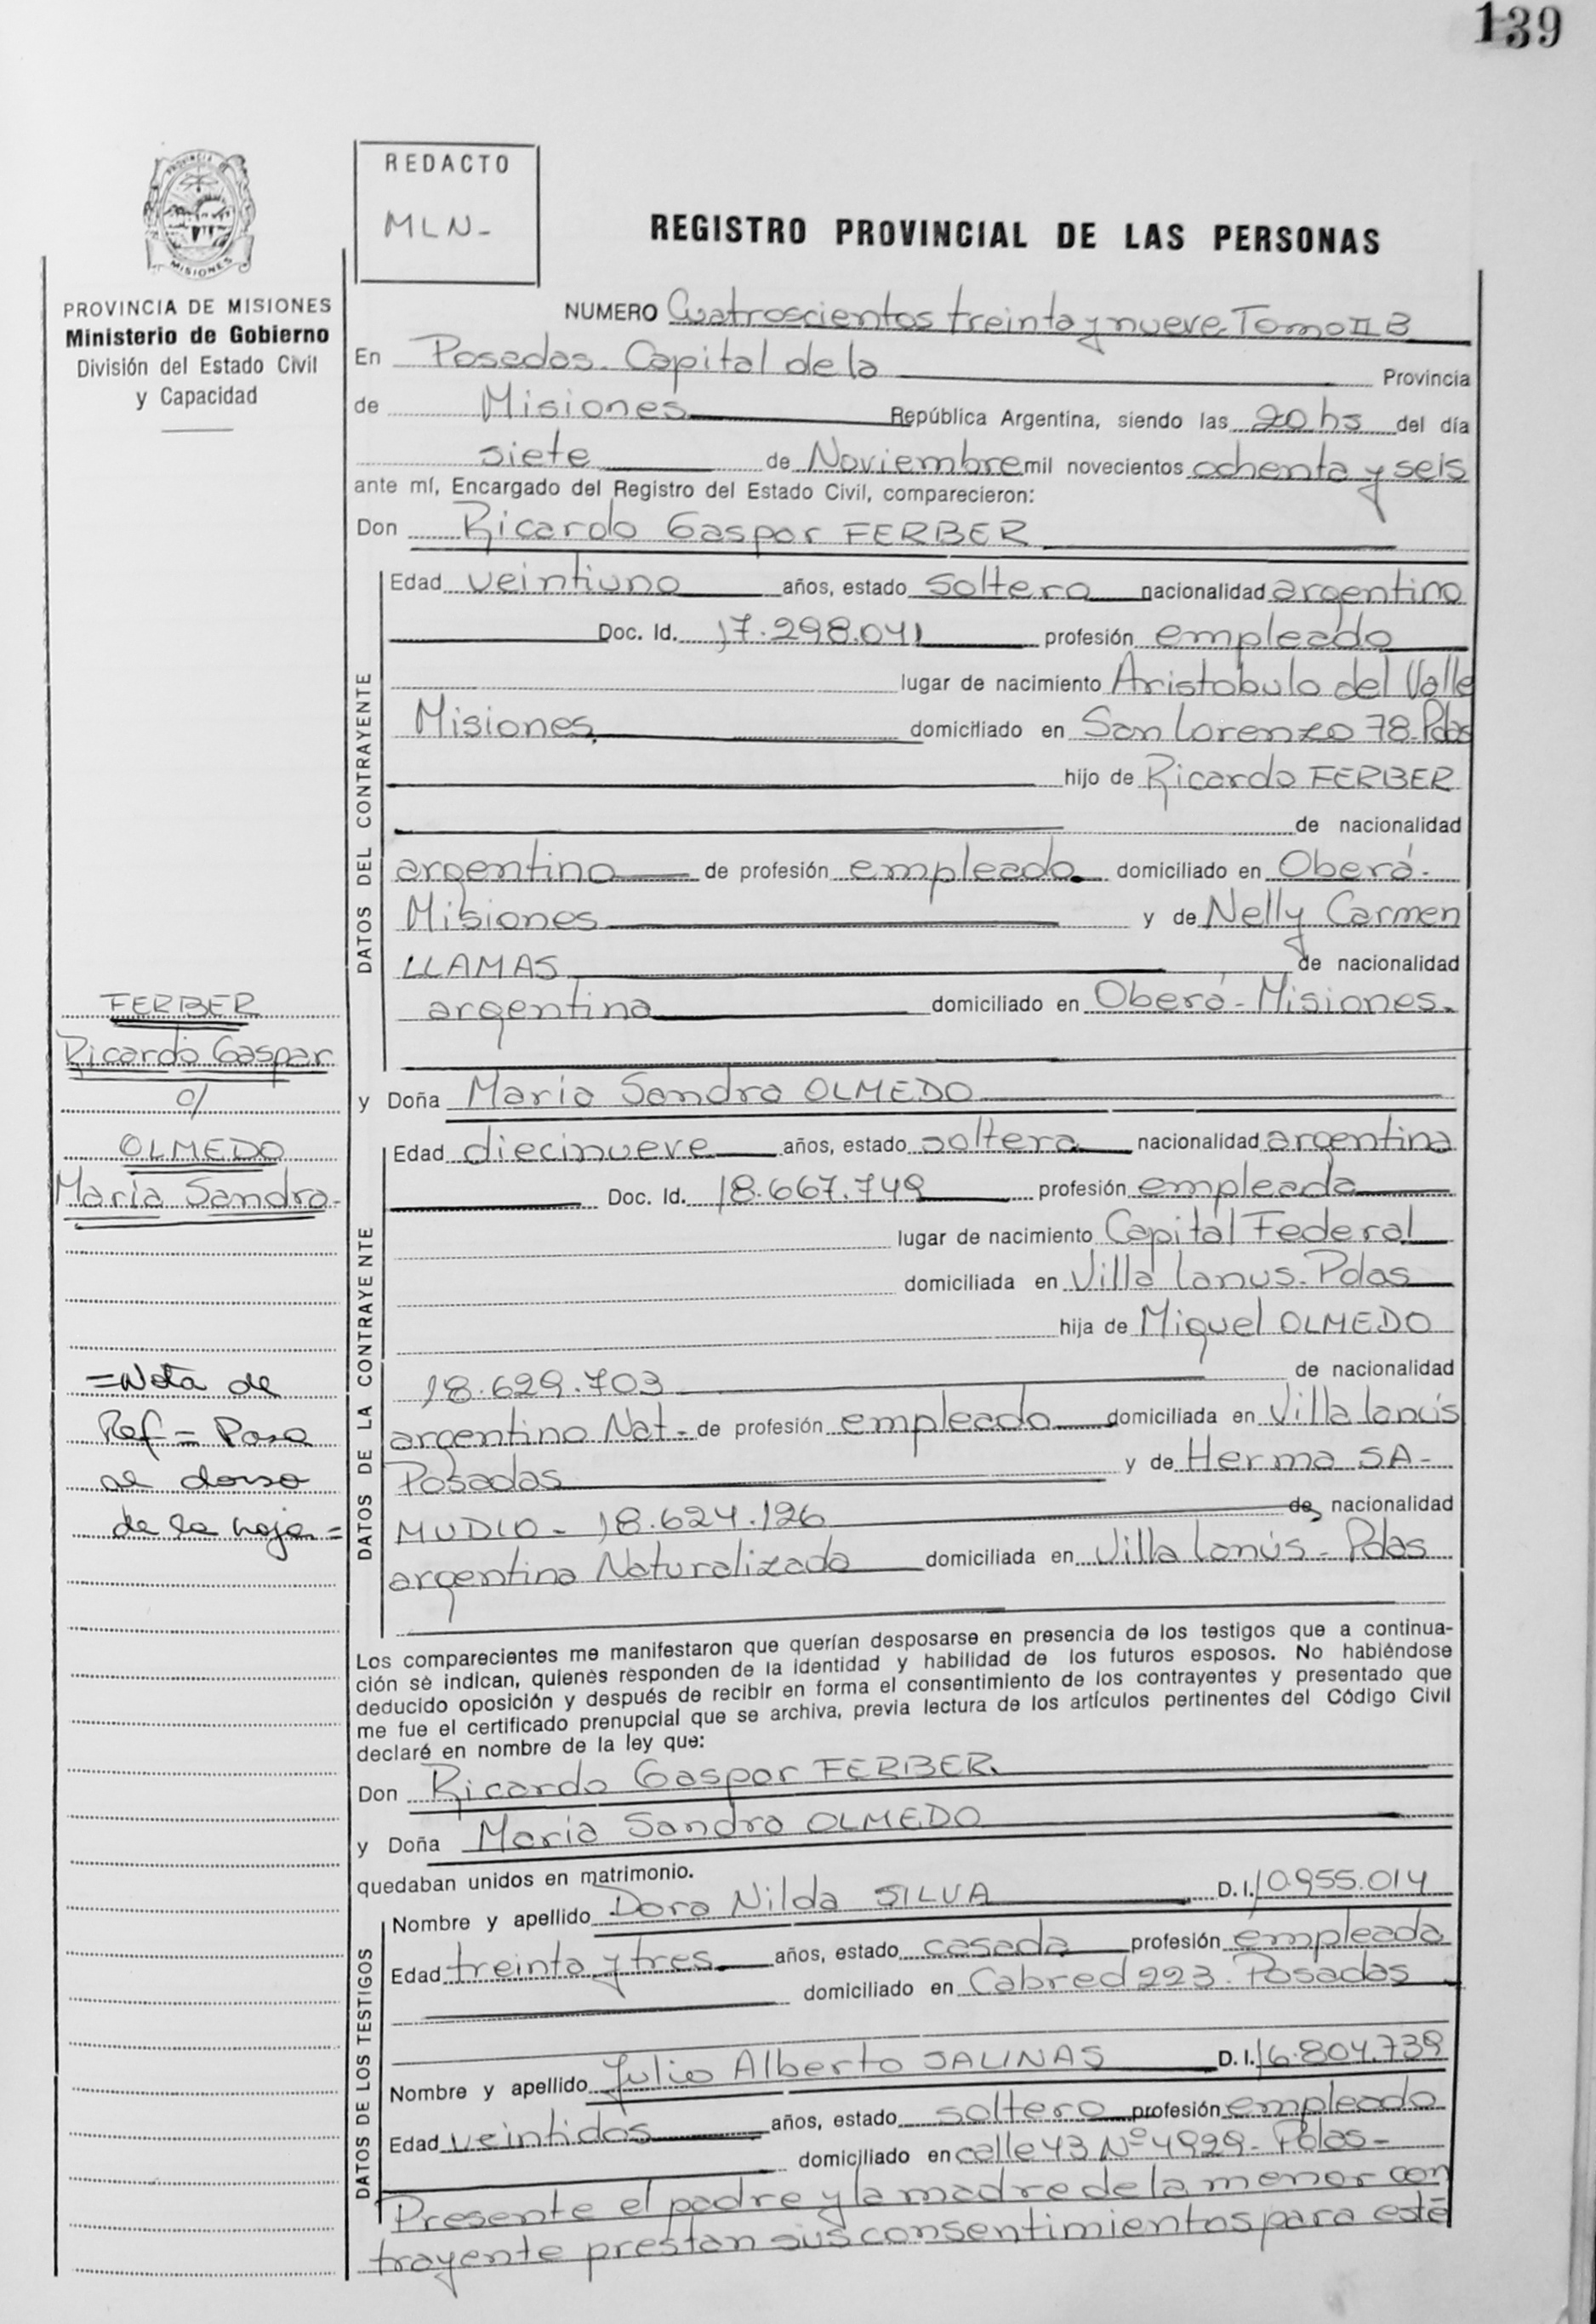 139
PROVINCIA DE
MISIONES
REDACTO
MLN-
REGISTRO PROVINCIAL DE LAS PERSONAS
PROVINCIA DE MISIONES
Ministerio de Gobierno
División del Estado Civil
y Capacidad
NUMERO Cuatroscientos treinta y nueve Tomo II B
En Posadas. Capital de la Provincia
de Misiones República Argentina, siendo las 20 hs del día
siete de Noviembre mil novecientos ochenta y seis
ante mí, Encargado del Registro del Estado Civil, comparecieron:
Don Ricardo Gaspar FERBER
DATOS DEL CONTRAYENTE
Edad veintiuno años, estado soltero nacionalidad argentino
Doc. Id. 17.298.041 profesión empleado
lugar de nacimiento Aristobulo del Valle
Misiones domiciliado en San Lorenzo 78-Pdas
hijo de Ricardo FERBER
de nacionalidad
argentino de profesión empleado domiciliado en Oberá-
Misiones y de Nelly Carmen
LLAMAS de nacionalidad
argentina domiciliado en Oberá-Misiones-
FERBER
Ricardo Gaspar
c/
OLMEDO
Maria Sandra-
y Doña Maria Sandra OLMEDO
DATOS DE LA CONTRAYENTE
Edad diecinueve años, estado soltera nacionalidad argentina
Doc. Id. 18.667.749 profesión empleada
lugar de nacimiento Capital Federal
domiciliada en Villa Lanus-Pdas
hija de Miguel OLMEDO
18.629.703 de nacionalidad
argentino Nat- de profesión empleado domiciliada en Villa Lanús
Posadas y de Herma SA-
MUDIO- 18.624.126 de nacionalidad
argentina Naturalizada domiciliada en Villa Lanús-Pdas
=Nota de
Ref= Pasa
al dorso
de la hoja=
Los comparecientes me manifestaron que querían desposarse en presencia de los testigos que a continua-
ción se indican, quienes responden de la identidad y habilidad de los futuros esposos. No habiéndose
deducido oposición y después de recibir en forma el consentimiento de los contrayentes y presentado que
me fue el certificado prenupcial que se archiva, previa lectura de los artículos pertinentes del Código Civil
declaré en nombre de la ley que:
Don Ricardo Gaspar FERBER
y Doña Maria Sandra OLMEDO
quedaban unidos en matrimonio.
DATOS DE LOS TESTIGOS
Nombre y apellido Dora Nilda SILVA D. I. 10.955.014
Edad treinta y tres años, estado casada profesión empleada
domiciliado en Cabred 223. Posadas
Nombre y apellido Julio Alberto SALINAS D. I. 16.804.739
Edad veintidos años, estado soltero profesión empleado
domiciliado en calle 43 Nº 4929-Pdas-
Presente el padre y la madre de la menor con
trayente prestan sus consentimientos para este